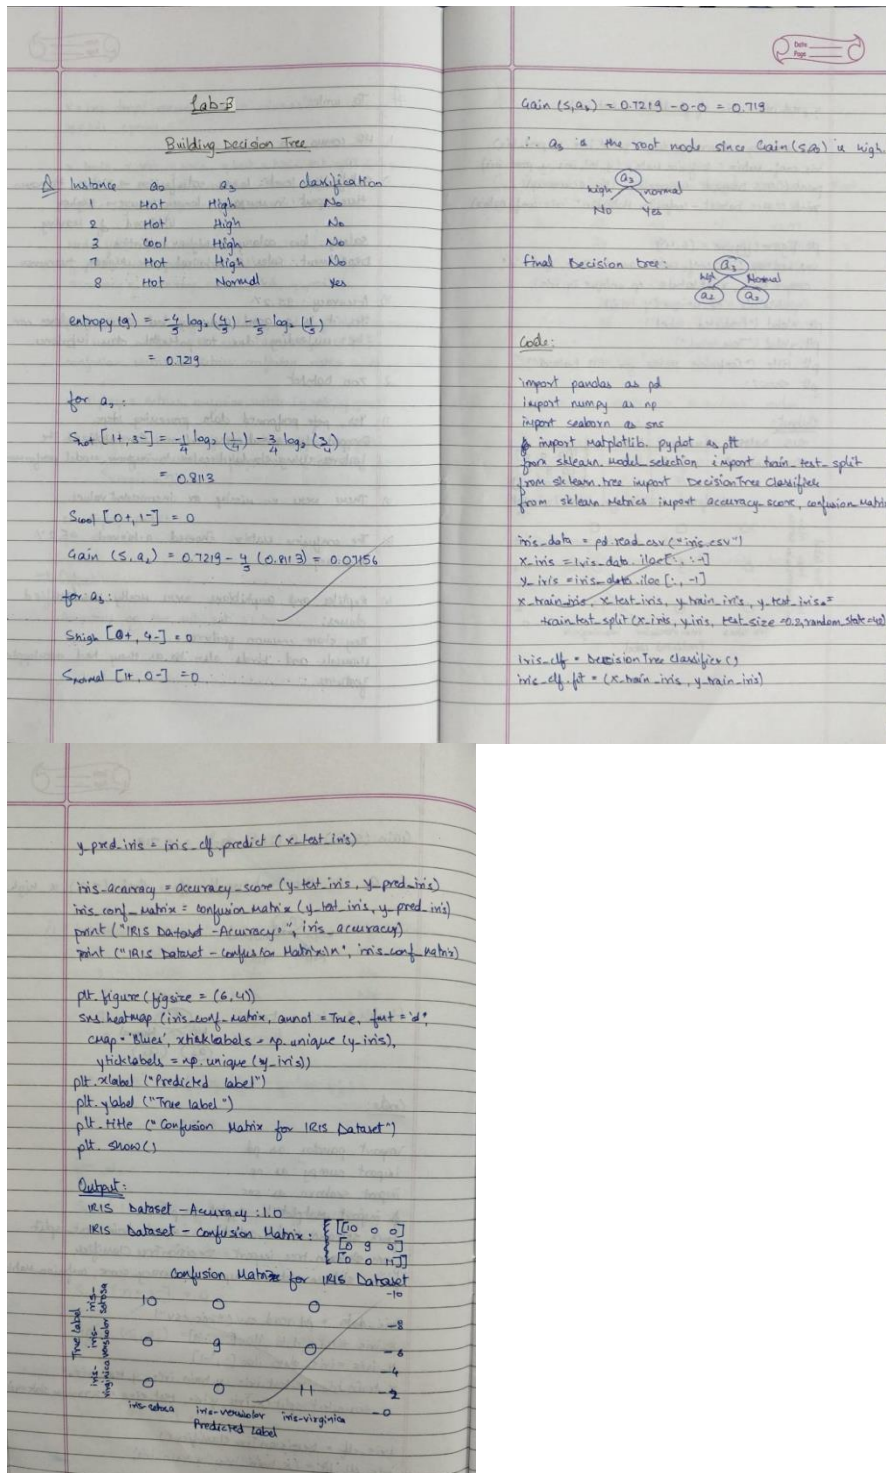 Lab-3
Building Decision Tree
Q Instance a2 a3 classification
1 Hot High No
2 Hot High No
3 cool High No
7 Hot High No
8 Hot Normal Yes
entropy(g) = -4/5 log2 (4/5) - 1/5 log2 (1/5)
= 0.7219
for a2:
Shot [1+, 3-] = -1/4 log2 (1/4) - 3/4 log2 (3/4)
= 0.8113
Scool [0+, 1-] = 0
Gain (S, a2) = 0.7219 - 4/5 (0.8113) = 0.07156
for a3:
Shigh [0+, 4-] = 0
Snormal [1+, 0-] = 0
Date
Page
Gain (S, a3) = 0.7219 - 0 - 0 = 0.719
∴ a3 is the root node since Gain (S, a3) is high.
a3
high normal
No Yes
Final Decision tree:
a3
high Normal
a2 a2
Code:
import pandas as pd
import numpy as np
import seaborn as sns
import matplotlib.pyplot as plt
from sklearn.model_selection import train_test_split
from sklearn.tree import DecisionTreeClassifier
from sklearn.metrics import accuracy_score, confusion_matrix
iris_data = pd.read_csv("iris.csv")
x_iris = iris_data.iloc[:, :-1]
y_iris = iris_data.iloc[:, -1]
x_train_iris, x_test_iris, y_train_iris, y_test_iris =
train_test_split(x_iris, y_iris, test_size=0.2, random_state=42)
iris_clf = DecisionTreeClassifier()
iris_clf.fit = (x_train_iris, y_train_iris)
y_pred_iris = iris_clf.predict (x_test_iris)
iris_accuracy = accuracy_score (y_test_iris, y_pred_iris)
iris_conf_matrix = confusion_matrix (y_test_iris, y_pred_iris)
print ("IRIS Dataset - Accuracy:", iris_accuracy)
print ("IRIS Dataset - Confusion Matrix:\n", iris_conf_matrix)
plt.figure (figsize = (6,4))
sns.heatmap (iris_conf_matrix, annot = True, fmt = 'd',
cmap = 'Blues', xticklabels = np.unique (y_iris),
yticklabels = np.unique (y_iris))
plt.xlabel ("Predicted label")
plt.ylabel ("True label")
plt.title ("Confusion Matrix for IRIS Dataset")
plt.show()
Output:
IRIS Dataset - Accuracy : 1.0
IRIS Dataset - Confusion Matrix: [[10 0 0]
[0 9 0]
[0 0 11]]
Confusion Matrix for IRIS Dataset
True label
iris-setosa 10 0 0
iris-versicolor 0 9 0
iris-virginica 0 0 11
-10
-8
-6
-4
-2
-0
iris-setosa iris-versicolor iris-virginica
Predicted Label